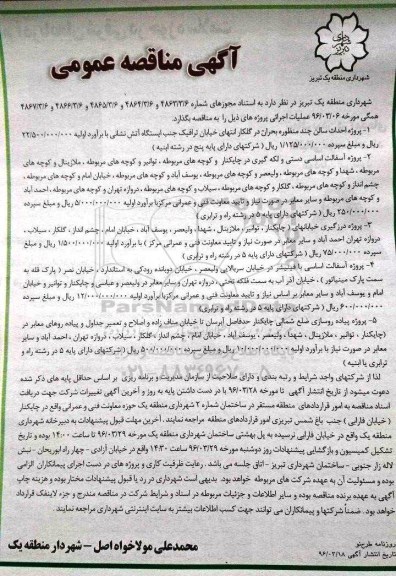 شهرداری منطقه یک تبریز
آگهی مناقصه عمومی
شهرداری منطقه یک تبریز در نظر دارد به استناد مجوزهای شماره ۴۸۶۳/۳/۶ و ۴۸۶۴/۳/۶ و ۴۸۶۵/۳/۶ و ۴۸۶۶/۳/۶ و ۴۸۶۷/۳/۶
همگی مورخه ۹۶/۰۳/۰۶ عملیات اجرائی پروژه های ذیل را به مناقصه بگذارد:
۱- پروژه احداث سالن چند منظوره بحران در گلکار انتهای خیابان ترافیک جنب ایستگاه آتش نشانی با برآورد اولیه ۲۲/۵۰۰/۰۰۰/۰۰۰
ریال و مبلغ سپرده ۱/۱۲۵/۰۰۰/۰۰۰ ریال ( شرکتهای دارای پایه پنج در رشته ابنیه )
۲- پروژه آسفالت اساسی دستی و لکه گیری در چایکنار و کوچه های مربوطه ، توانیر و کوچه های مربوطه ، ملازینال و کوچه های
مربوطه ، شهدا و کوچه های مربوطه ، ولیعصر و کوچه های مربوطه ، یوسف آباد و کوچه های مربوطه ، خیابان امام و کوچه های مربوطه ،
چشم انداز و کوچه های مربوطه ، گلکار و کوچه های مربوطه ، سیلاب و کوچه های مربوطه ، دروازه تهران و کوچه های مربوطه ، احمد آباد
و کوچه های مربوطه و سایر معابر در صورت نیاز و تایید معاونت فنی و عمرانی مرکز با برآورد اولیه ۵/۰۰۰/۰۰۰/۰۰۰ ریال و مبلغ سپرده
۲۵۰/۰۰۰/۰۰۰ ریال ( شرکتهای دارای پایه ۵ در رشته راه و ترابری )
۳- پروژه درزگیری خیابانهای ( چایکنار ، توانیر ، ملازینال ، شهدا ، ولیعصر ، یوسف آباد ، خیابان امام ، چشم انداز ، گلکار ، سیلاب ،
دروازه تهران احمد آباد و سایر معابر در صورت نیاز و تایید معاونت فنی و عمرانی مرکز ) با برآورد اولیه ۱/۵۰۰/۰۰۰/۰۰۰ ریال و مبلغ
سپرده ۷۵/۰۰۰/۰۰۰ ریال ( شرکتهای دارای پایه ۵ در رشته راه و ترابری )
۴- پروژه آسفالت اساسی با فینیشر در خیابان سربالایی ولیعصر ، خیابان دوبانده رودکی به استانداری ، خیابان نصر ( پارک قله به
سمت پارک مینیاتور ) ، خیابان آذر آب به سمت فلکه تختی، دروازه تهران و سایر معابر در ولیعصر و عباسی و چایکنار و توانیر و خیابان
امام و یوسف آباد و سایر معابر بر اساس نیاز و تایید معاونت فنی و عمرانی مرکز با برآورد اولیه ۱۲/۰۰۰/۰۰۰/۰۰۰ ریال و مبلغ سپرده
۶۰۰/۰۰۰/۰۰۰ ریال ( شرکتهای دارای پایه ۵ در رشته راه و ترابری )
۵- پروژه پیاده روسازی ضلع شمالی چایکنار حدفاصل آبرسان تا خیابان مناف زاده و اصلاح و تعمیر جداول و پیاده روهای معابر در
(چایکنار ، توانیر ، ملازینال ، شهدا ، ولیعصر ، یوسف آباد ، خیابان امام ، چشم انداز ، گلکار ، سیلاب ، دروازه تهران ، احمد آباد و سایر
معابر در صورت نیاز با برآورد اولیه ۱۰/۰۰۰/۰۰۰/۰۰۰ ریال و مبلغ سپرده ۵۰۰/۰۰۰/۰۰۰ ریال ( شرکتهای دارای پایه ۵ در رشته راه و
ترابری یا ابنیه )
لذا از شرکتهای واجد شرایط و رتبه بندی ، و دارای صلاحیت از سازمان مدیریت و برنامه ریزی بر اساس حداقل پایه های ذکر شده
دعوت میشود از تاریخ انتشار آگهی تا مورخه ۹۶/۰۳/۲۸ با در دست داشتن پایه به روز و آخرین آگهی تغییرات شرکت جهت دریافت
اسناد مناقصه به امور قراردادهای منطقه مستقر در ساختمان شماره ۲ شهرداری منطقه یک حوزه معاونت فنی و عمرانی واقع در چایکنار
( خیابان فارابی ) جنب باغ شمس تبریزی امور قراردادهای منطقه مراجعه نمایند . آخرین مهلت قبول پیشنهادات به دبیرخانه شهرداری
منطقه یک واقع در خیابان فارابی نرسیده به پل بهشتی ساختمان شهرداری منطقه یک مورخه ۹۶/۰۳/۲۹ تا ساعت ۱۴:۰۰ بوده و تاریخ
تشکیل کمیسیون و بازگشایی پیشنهادات روز دوشنبه مورخه ۹۶/۰۳/۲۹ ساعت ۱۴:۳۰ واقع در خیابان آزادی - چهار راه ابوریحان - نبش
لاله زار جنوبی - ساختمان شهرداری تبریز - اتاق جلسه می باشد . رعایت ظرفیت کاری و پروژه های در دست اجرای پیمانکاران الزامی
بوده و مسئولیت آن به عهده شرکت های مربوطه خواهد بود. بدیهی است شهرداری در رد یا قبول پیشنهادات مختار بوده و هزینه چاپ
آگهی به عهده برنده مناقصه بوده و سایر اطلاعات و جزئیات مربوطه در اسناد و شرایط شرکت در مناقصه مندرج و جزء لاینفک قرارداد
خواهد بود . ضمناً شرکتها و پیمانکاران می توانند جهت کسب اطلاعات بیشتر به سایت اینترنتی شهرداری مراجعه نمایند
محمدعلی مولاخواه اصل - شهردار منطقه یک
روزنامه طرح نو
تاریخ انتشار آگهی ۹۶/۰۳/۱۸